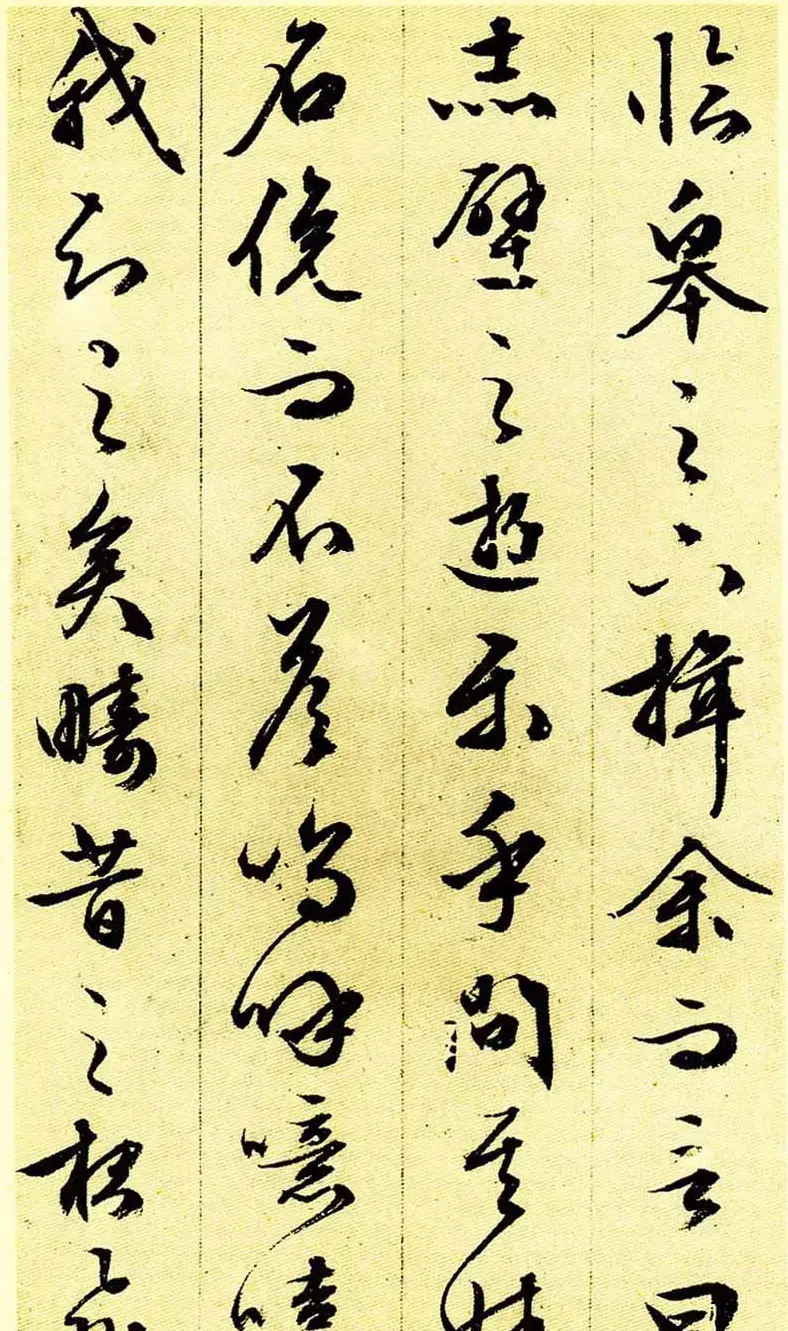 臨皐之下揖余而言曰
赤壁之遊樂乎問其姓
名俛而不答嗚呼噫嘻
我知之矣疇昔之夜飛